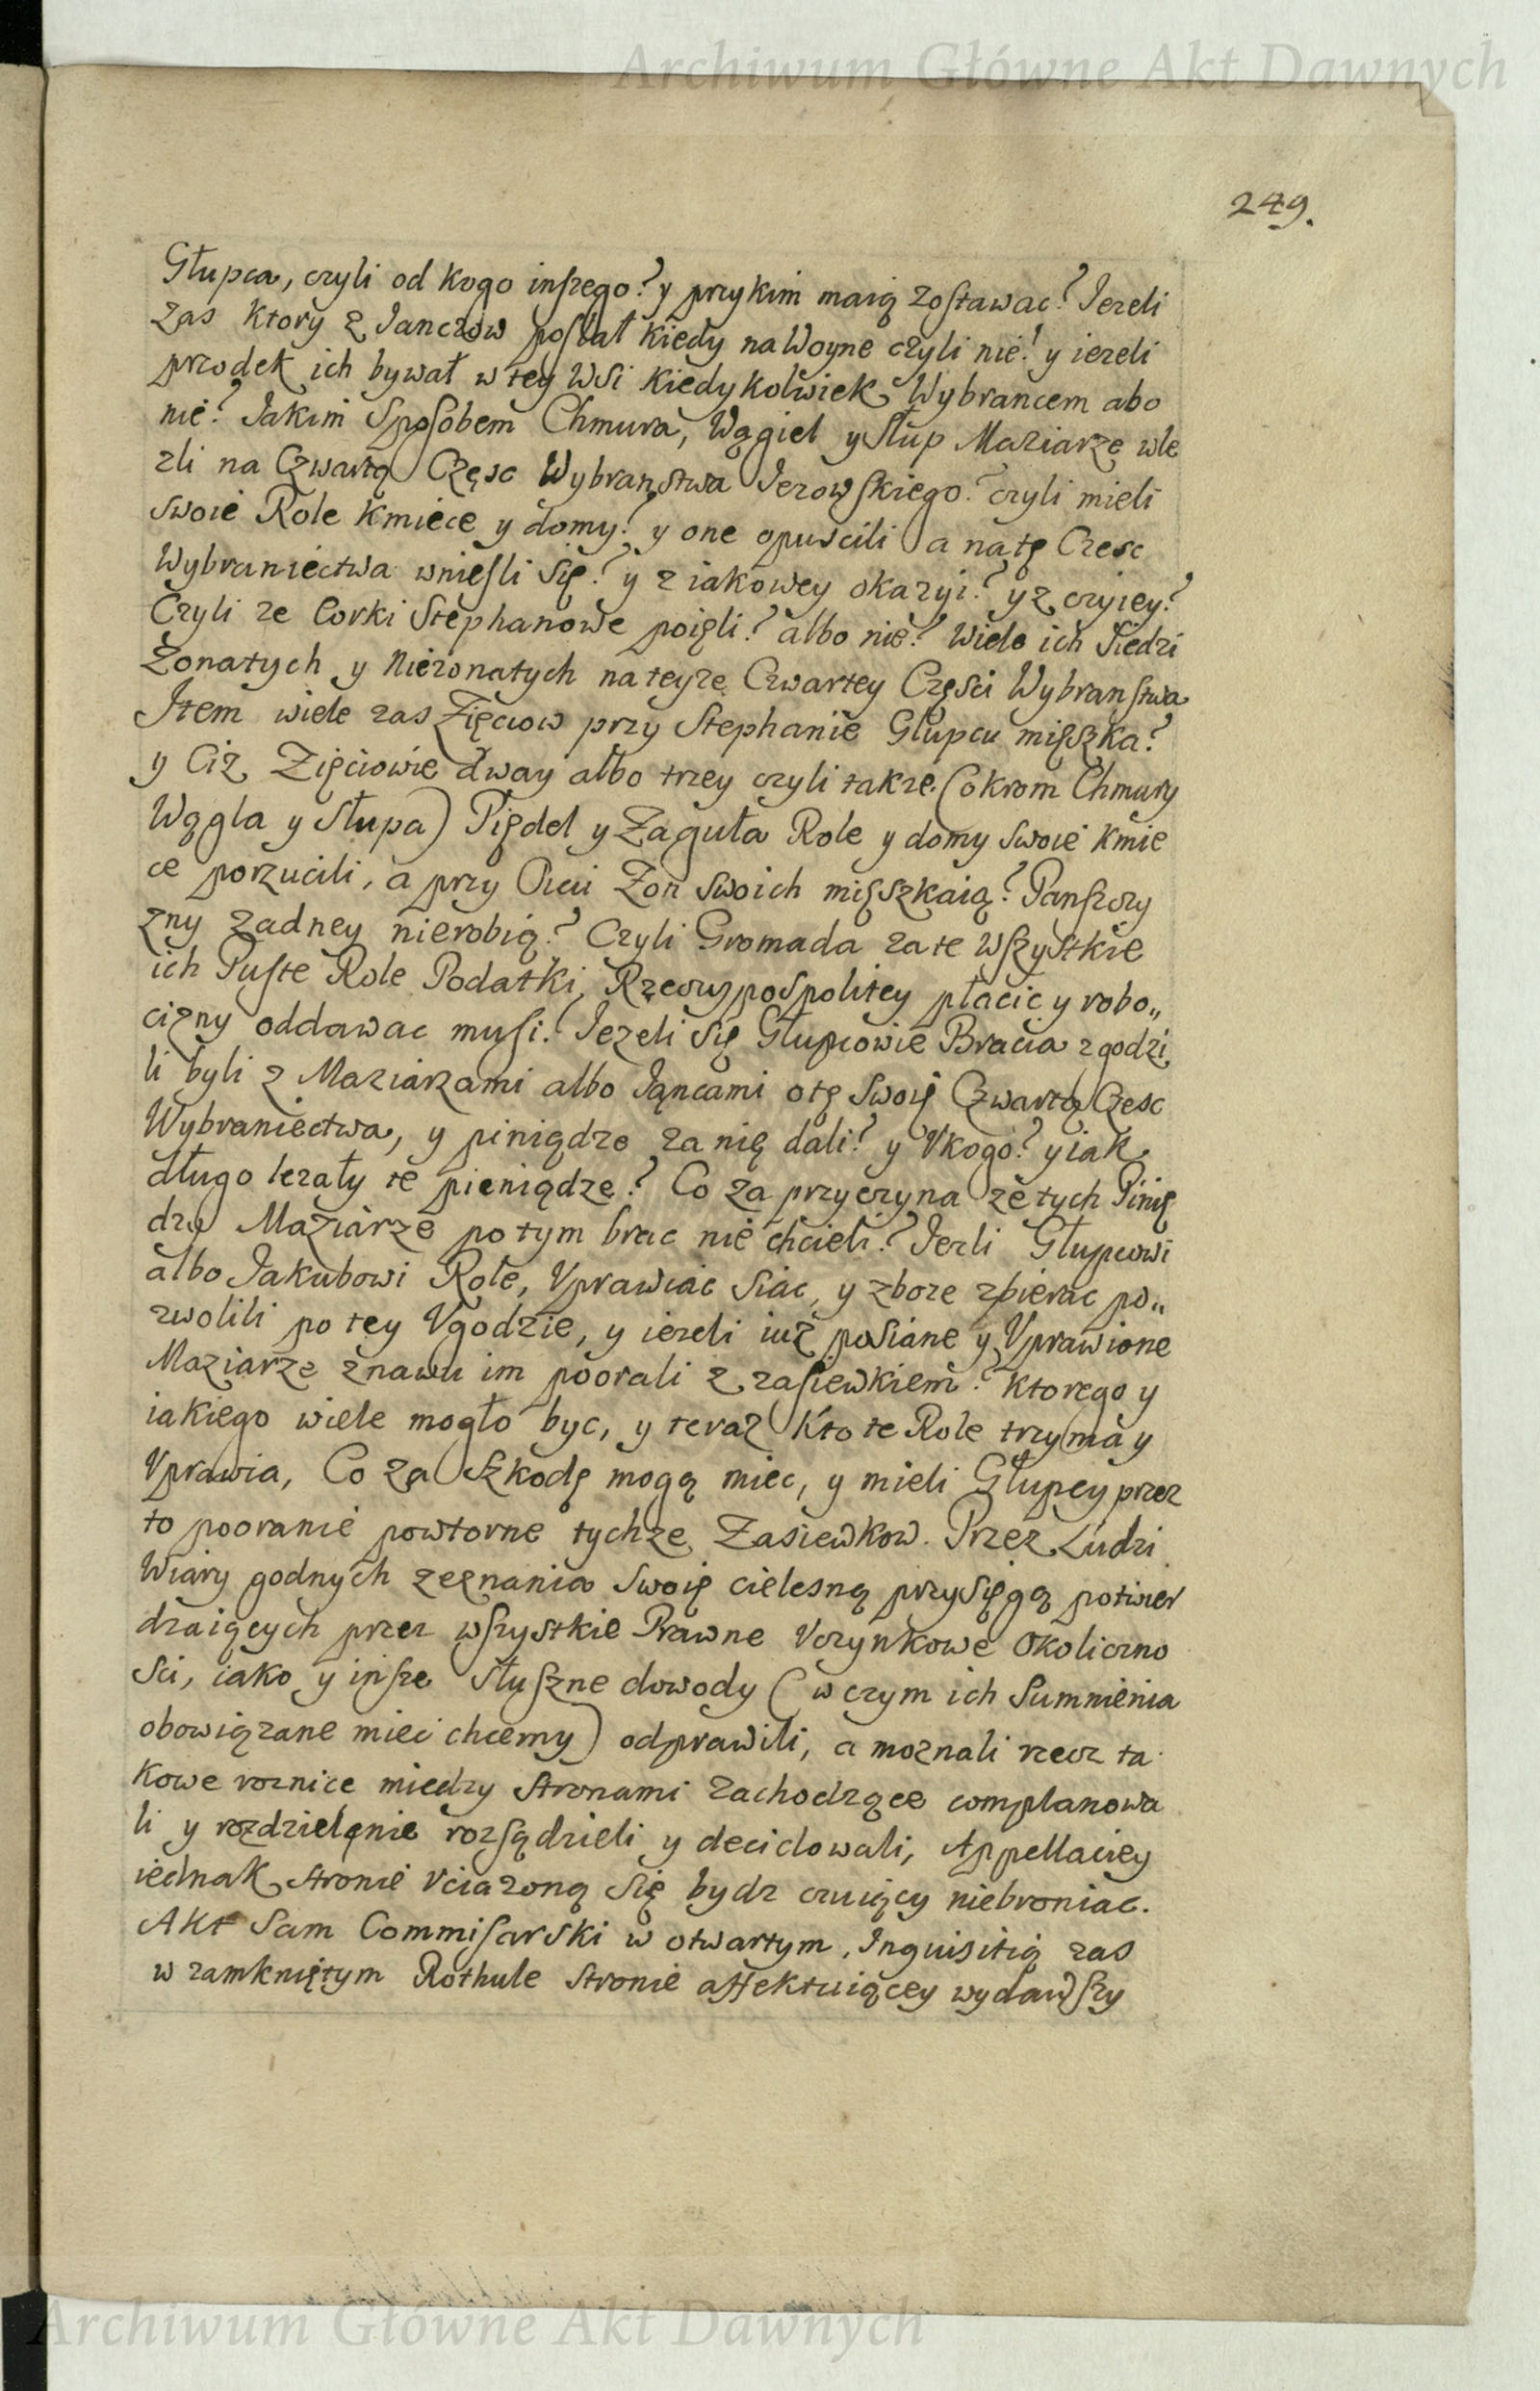 Archiwum Główne Akt Dawnych
249.
Głupca, czyli od kogo inszego? y przykim maią zostawac? Iezeli
zas ktory z Ianczow posłał kiedy na Woyne czyli nie? y iezeli
przodek ich bywał w tey Wsi kiedykolwiek Wybrancem abo
nie? Iakim Sposobem Chmura, Wągiel y Słup Maziarze wle
zli na Czwartą Częsc Wybranstwa Iezowskiego? czyli mieli
swoie Role Kmiece y domy? y one opuscili a natę Czesc
Wybraniectwa wniesli się? y z iakowey okazyi? y z czyiey?
Czyli ze Corki Stephanowe poięli? albo nie? Wiele ich Siedzi
Zonatych y Niezonatych na teyze Czwartey Części Wybranstwa
Item wiele zas Zięciow przy Stephanie Głupcu mięszka?
y Ciz Zięciowie dway albo trzey czyli takze (okrom Chmury
Wągla y Słupa) Piędel y Zaguła Role y domy swoie Kmie
ce porzucili, a przy Oicu Zon swoich mięszkaią? Panszczy
zny zadney nierobią? Czyli Gromada zate wszystkie
ich Puste Role Podatki Rzeczypospolitey płacic y robo„
cizny oddawac musi? Iezeli się Głupcowie Bracia zgodzi
li byli z Maziarzami albo Iąncami otę swoię Czwartą Czesc
Wybraniectwa, y piniądze za nię dali? y Vkogo? y iak
długo lezały te pieniądze? Co za przyczyna ze tych Pinię
dzy Maziarze potym brac nie chcieli? Iezli Głupcowi
albo Iakubowi Role, Vprawiac siac, y zboze zbierac po„
zwolili po tey Vgodzie, y iezeli iuz posiane y Vprawione
Maziarze znawu im poorali z zasiewkiem? ktorego y
iakiego wiele mogło byc, y teraz Kto te Role trzyma y
Vprawia, Co za Szkodę mogą miec, y mieli Głupcy przez
to pooranie powtorne tychze Zasiewkow. Przez Ludzi
Wiary godnych zeznania swoię cielesną przysięgą potwier
dzaiących przez wszystkie Prawne Vczynkowe Okoliczno
sci, iako y insze słuszne dowody (w czym ich Sumnienia
obowiązane mieć chcemy) odprawili, a moznali rzecz ta
kowe roznice miedzy Stronami zachodzące complanowa
li y rozdzielenie rozsądzieli y decidowali, Appellaciey
iednak stronie Vciazoną się bydz czuiący niebroniac.
Akt Sam Commisarski w otwartym, Inquisitią zas
w zamkniętym Rothule stronie affektuiącey wydawszy
Archiwum Główne Akt Dawnych